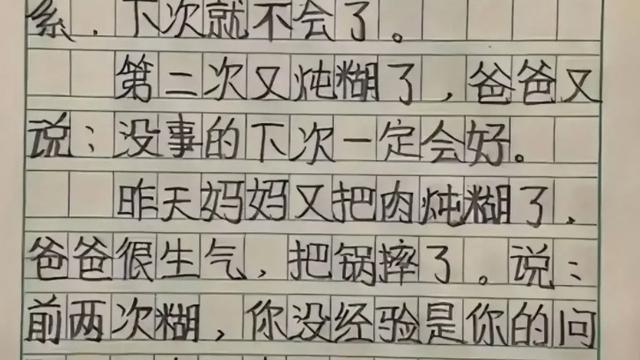 系．下次就不会了。
第二次又炖糊了，爸爸又
说：没事的下次一定会好。
昨天妈妈又把肉炖糊了，
爸爸很生气，把锅摔了。说：
前两次糊，你没经验是你的问